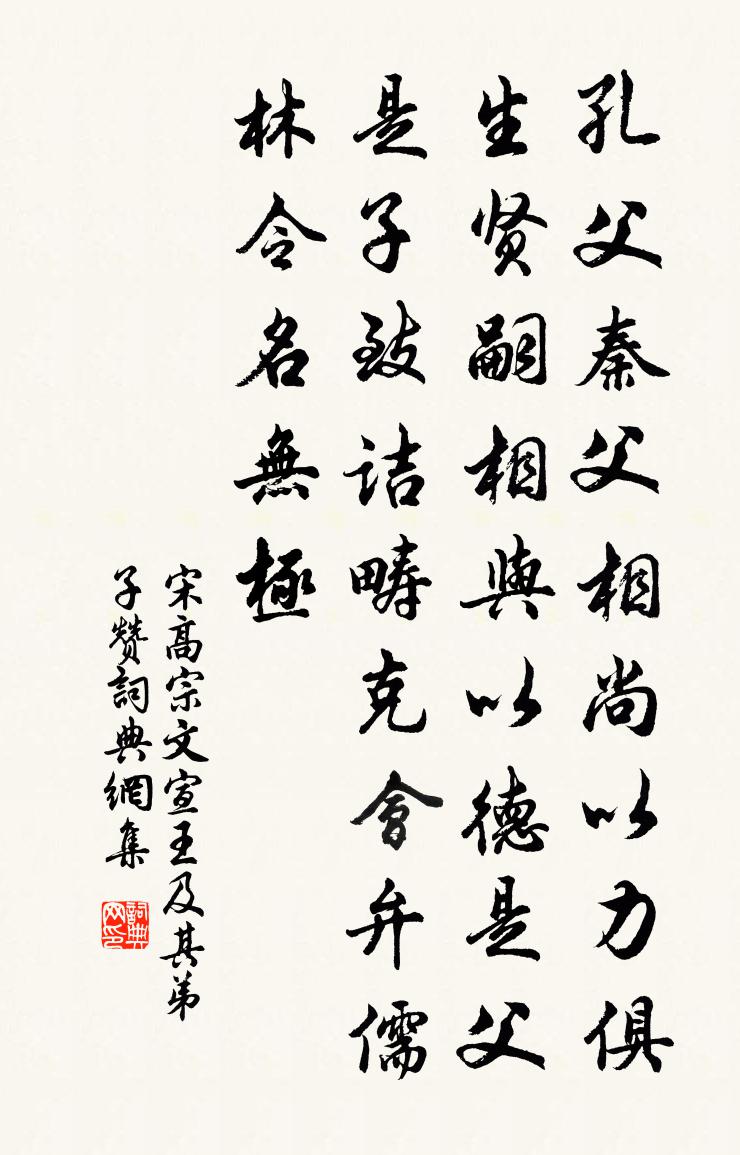 孔父秦父相尚以力俱
生贤嗣相與以德是父
是子致詰疇克會弁儒
林令名無極
宋高宗文宣王及其弟
子贊詞典網集
詞典网印